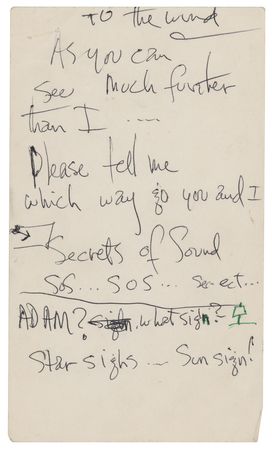 TO the wind
As you can
see much further
than I ....
Please tell me
which way go you and I
→ Secrets of Sound
SOS... SOS...
ADAM? what sign?
Star signs ... Sun sign?